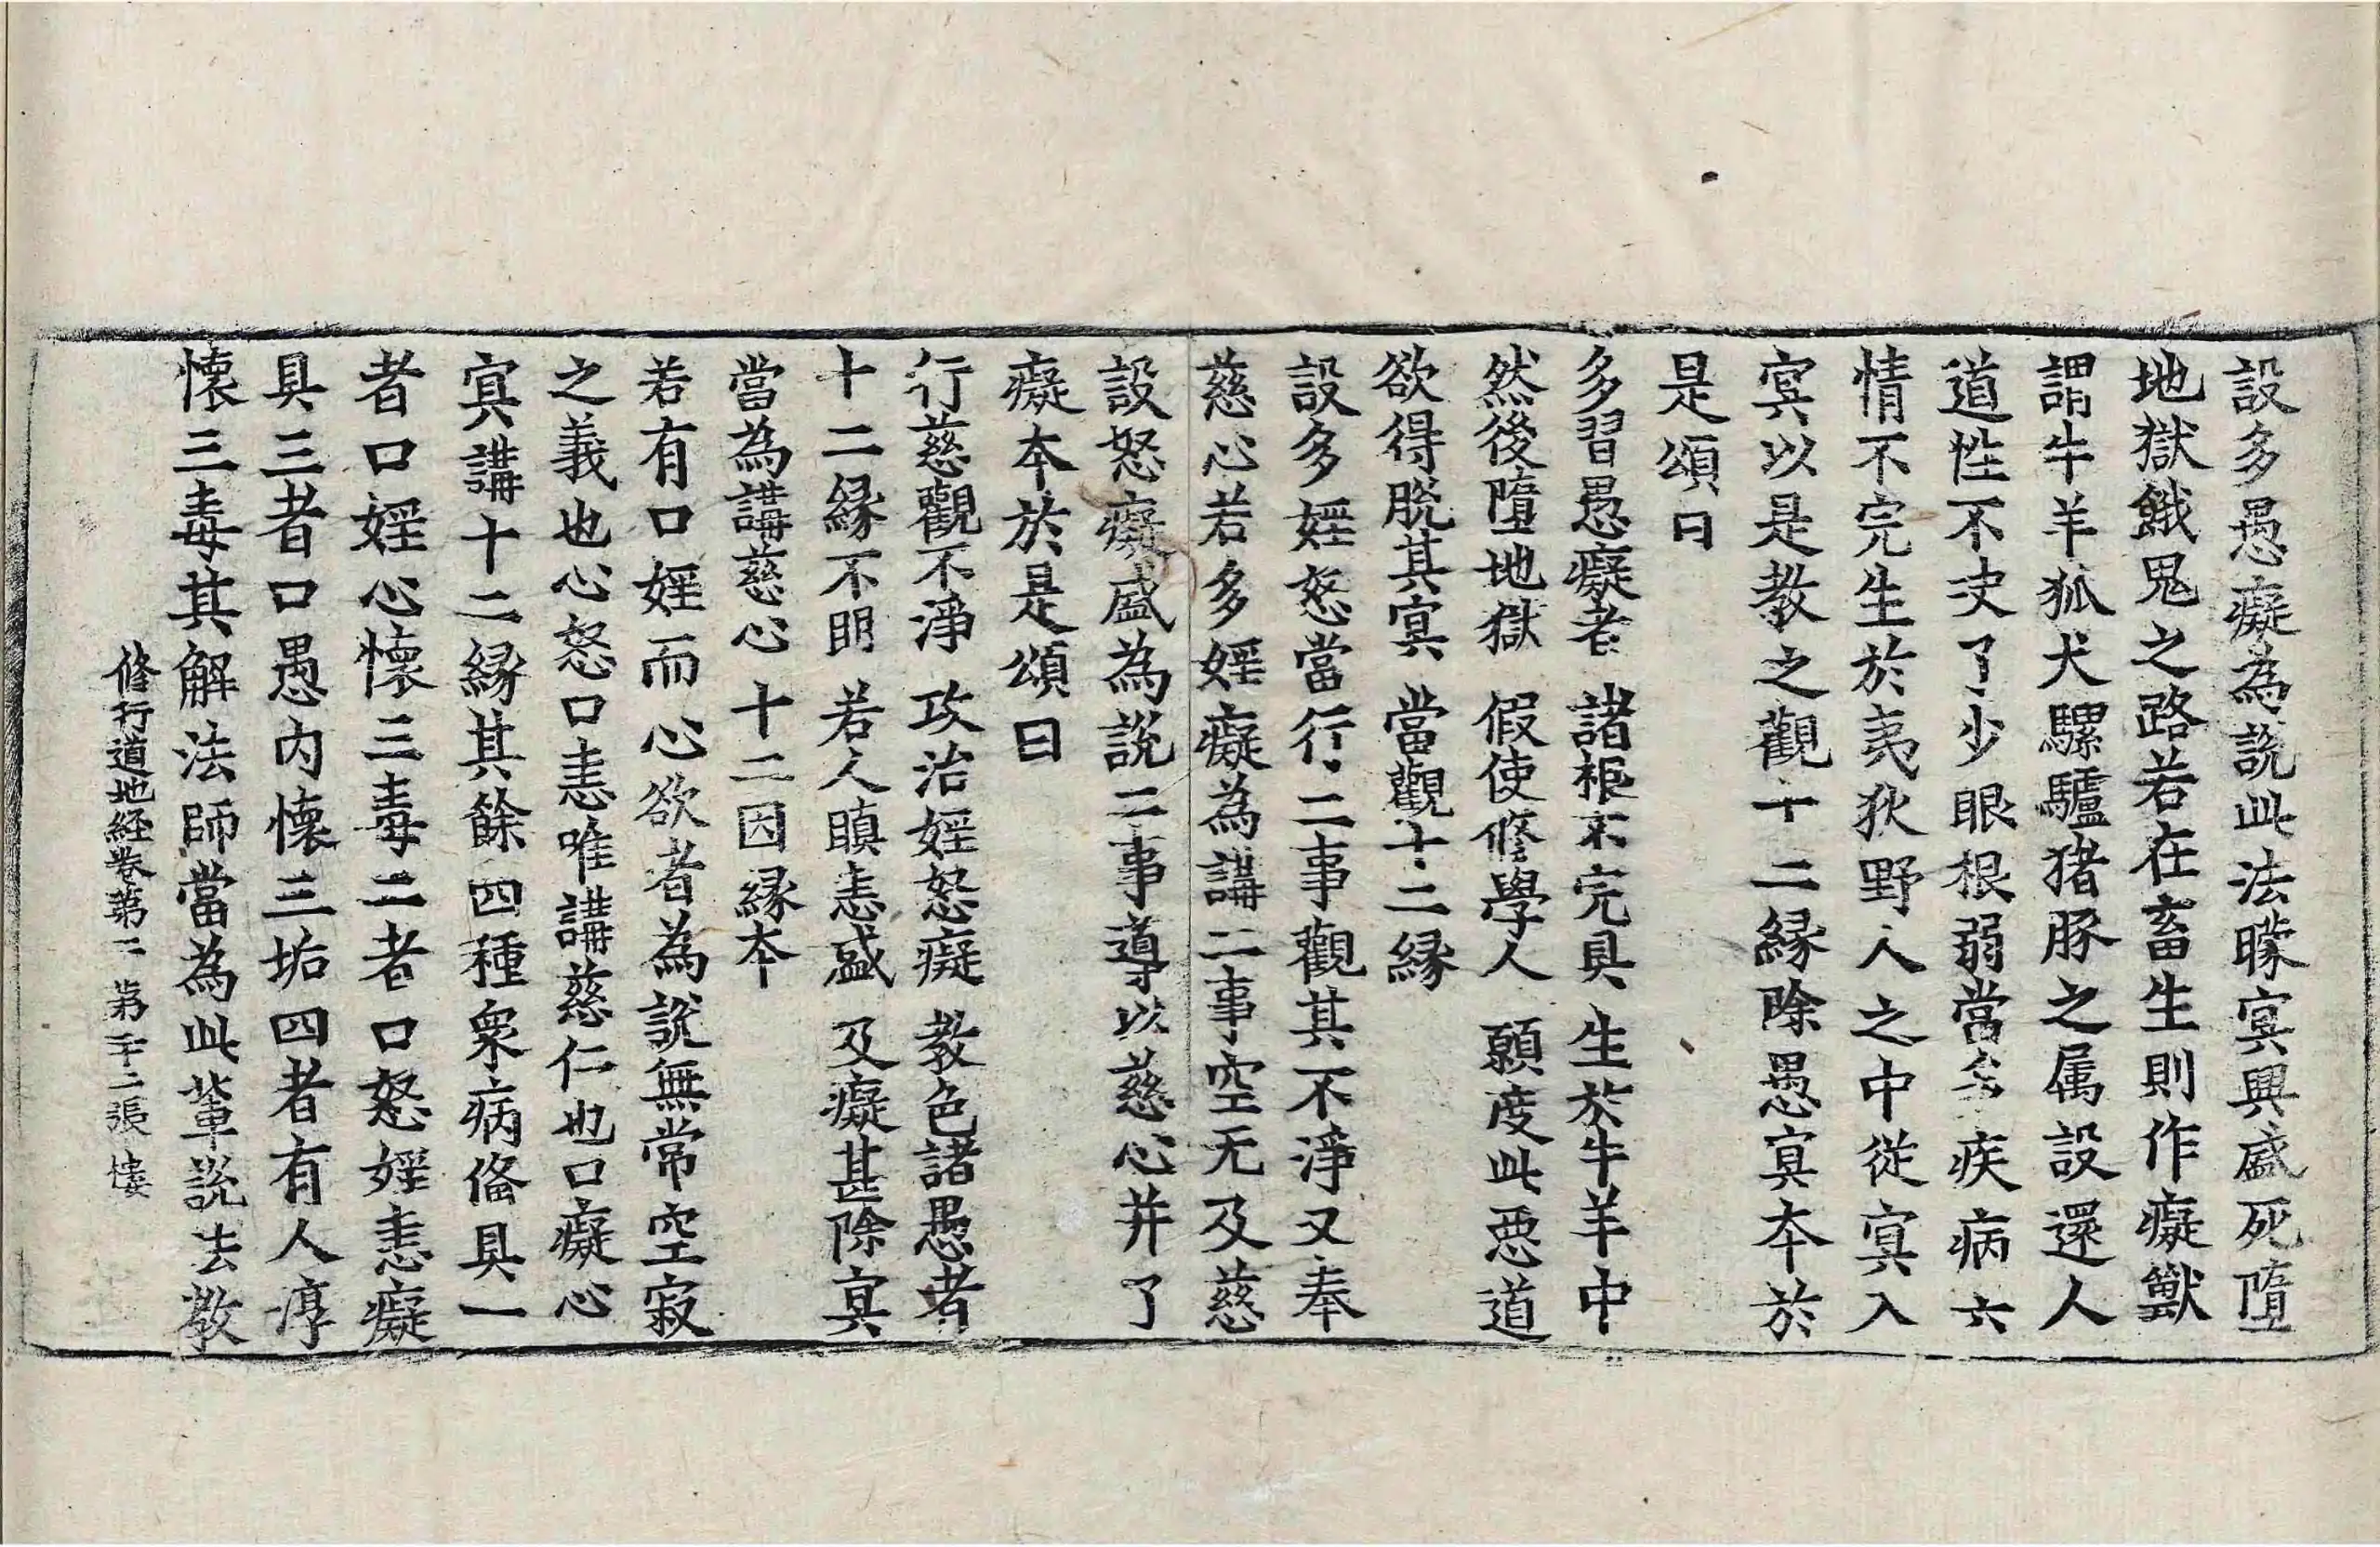 設多愚癡為說此法曚冥興盛死墮
地獄餓鬼之路若在畜生則作癡獸
謂牛羊狐犬騾驢猪豚之属設還人
道性不决了少眼根弱當多疾病六
情不完生於夷狄野人之中從冥入
冥以是教之觀十二縁除愚冥本於
是頌曰
多習愚癡者 諸根不完具 生於牛羊中
然後墮地獄 假使修學人 願度此惡道
欲得脫其冥 當觀十二縁
設多婬怒當行二事觀其不淨又奉
慈心若多婬癡為講二事空无及慈
設怒癡盛為說二事導以慈心并了
癡本於是頌曰
行慈觀不淨 攻治婬怒癡 教色諸愚者
十二縁不明 若人瞋恚盛 及癡甚除冥
當為講慈心 十二因縁本
若有口婬而心欲者為說無常空寂
之義也心怒口恚唯講慈仁也口癡心
冥講十二縁其餘四種衆病俻具一
者口婬心懷三毒二者口怒婬恚癡
具三者口愚内懷三垢四者有人淳
懷三毒其解法師當為此輩說法教
修行道地経卷第二 第二十二張 樓